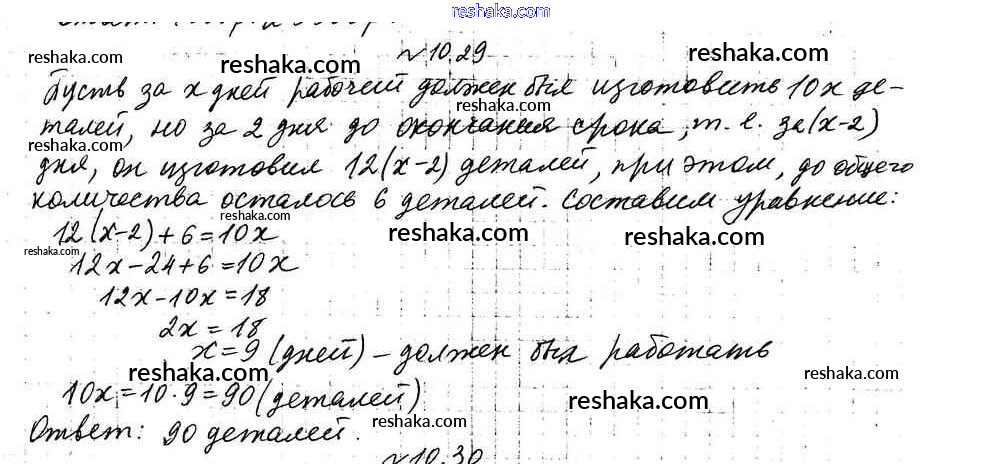 reshaka.com
№10.29
reshaka.com reshaka.com reshaka.com
Пусть за x дней рабочий должен был изготовить 10x де-
reshaka.com
талей, но за 2 дня до окончания срока, т. е. за (x-2)
reshaka.com reshaka.com reshaka.com
дня, он изготовил 12(x-2) деталей, при этом, до общего
количества осталось 6 деталей. Составим уравнение:
reshaka.com
12(x-2)+6=10x
reshaka.com reshaka.com reshaka.com
12x-24+6=10x
12x-10x=18
2x=18
x=9 (дней) - должен был работать
reshaka.com reshaka.com
10x=10·9=90 (деталей)
reshaka.com reshaka.com
Ответ: 90 деталей.
№10.30